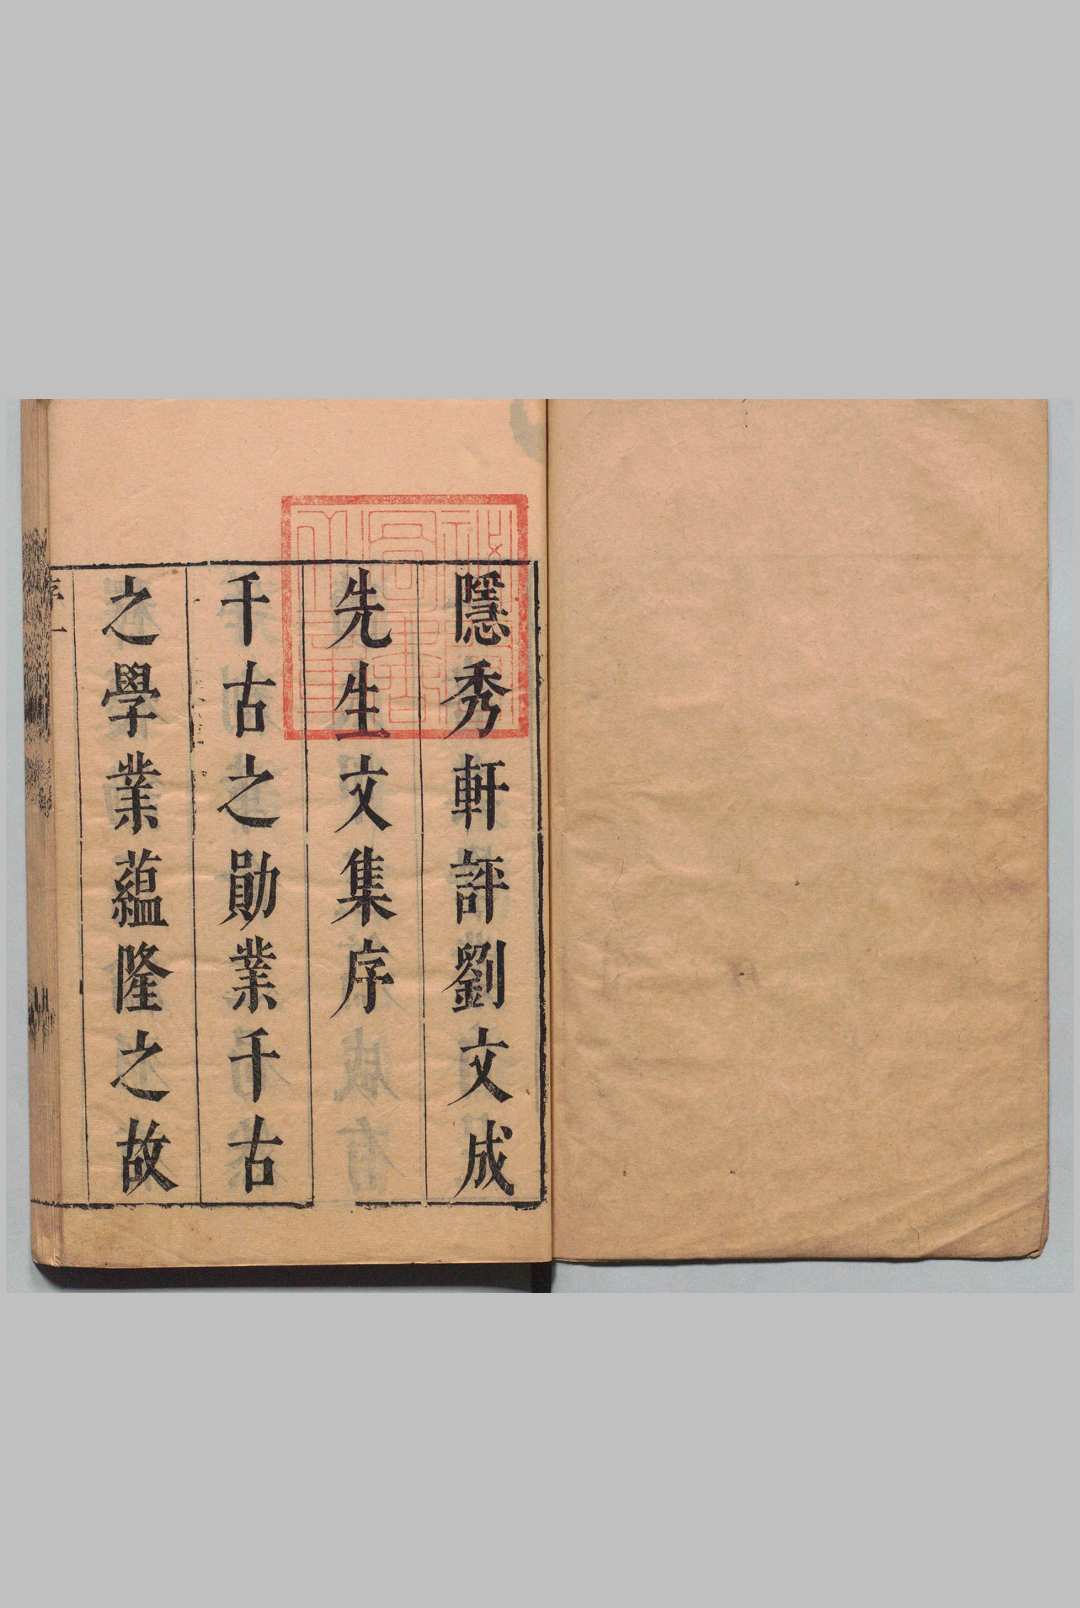 隱秀軒評劉文成
先生文集序
千古之勛業千古
之學業蘊隆之故
序一